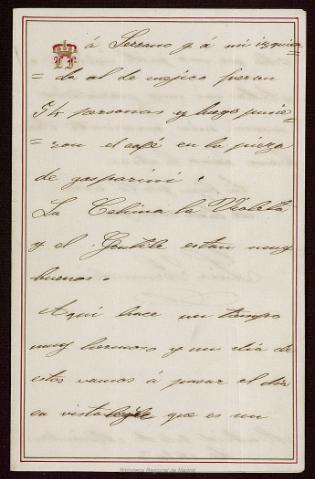 á Serrano y á mi izquier=
=da al de mejico fueran
54 personas y luego pusie=
=ron el café en la pieza
de gasparini.
La Celina la Violeta
y el Gentil estan muy
buenos.
Aqui hace un tiempo
muy hermoso y un dia de
estos vamos á pasar el dia
en vista que es un
Biblioteca Regional de Madrid